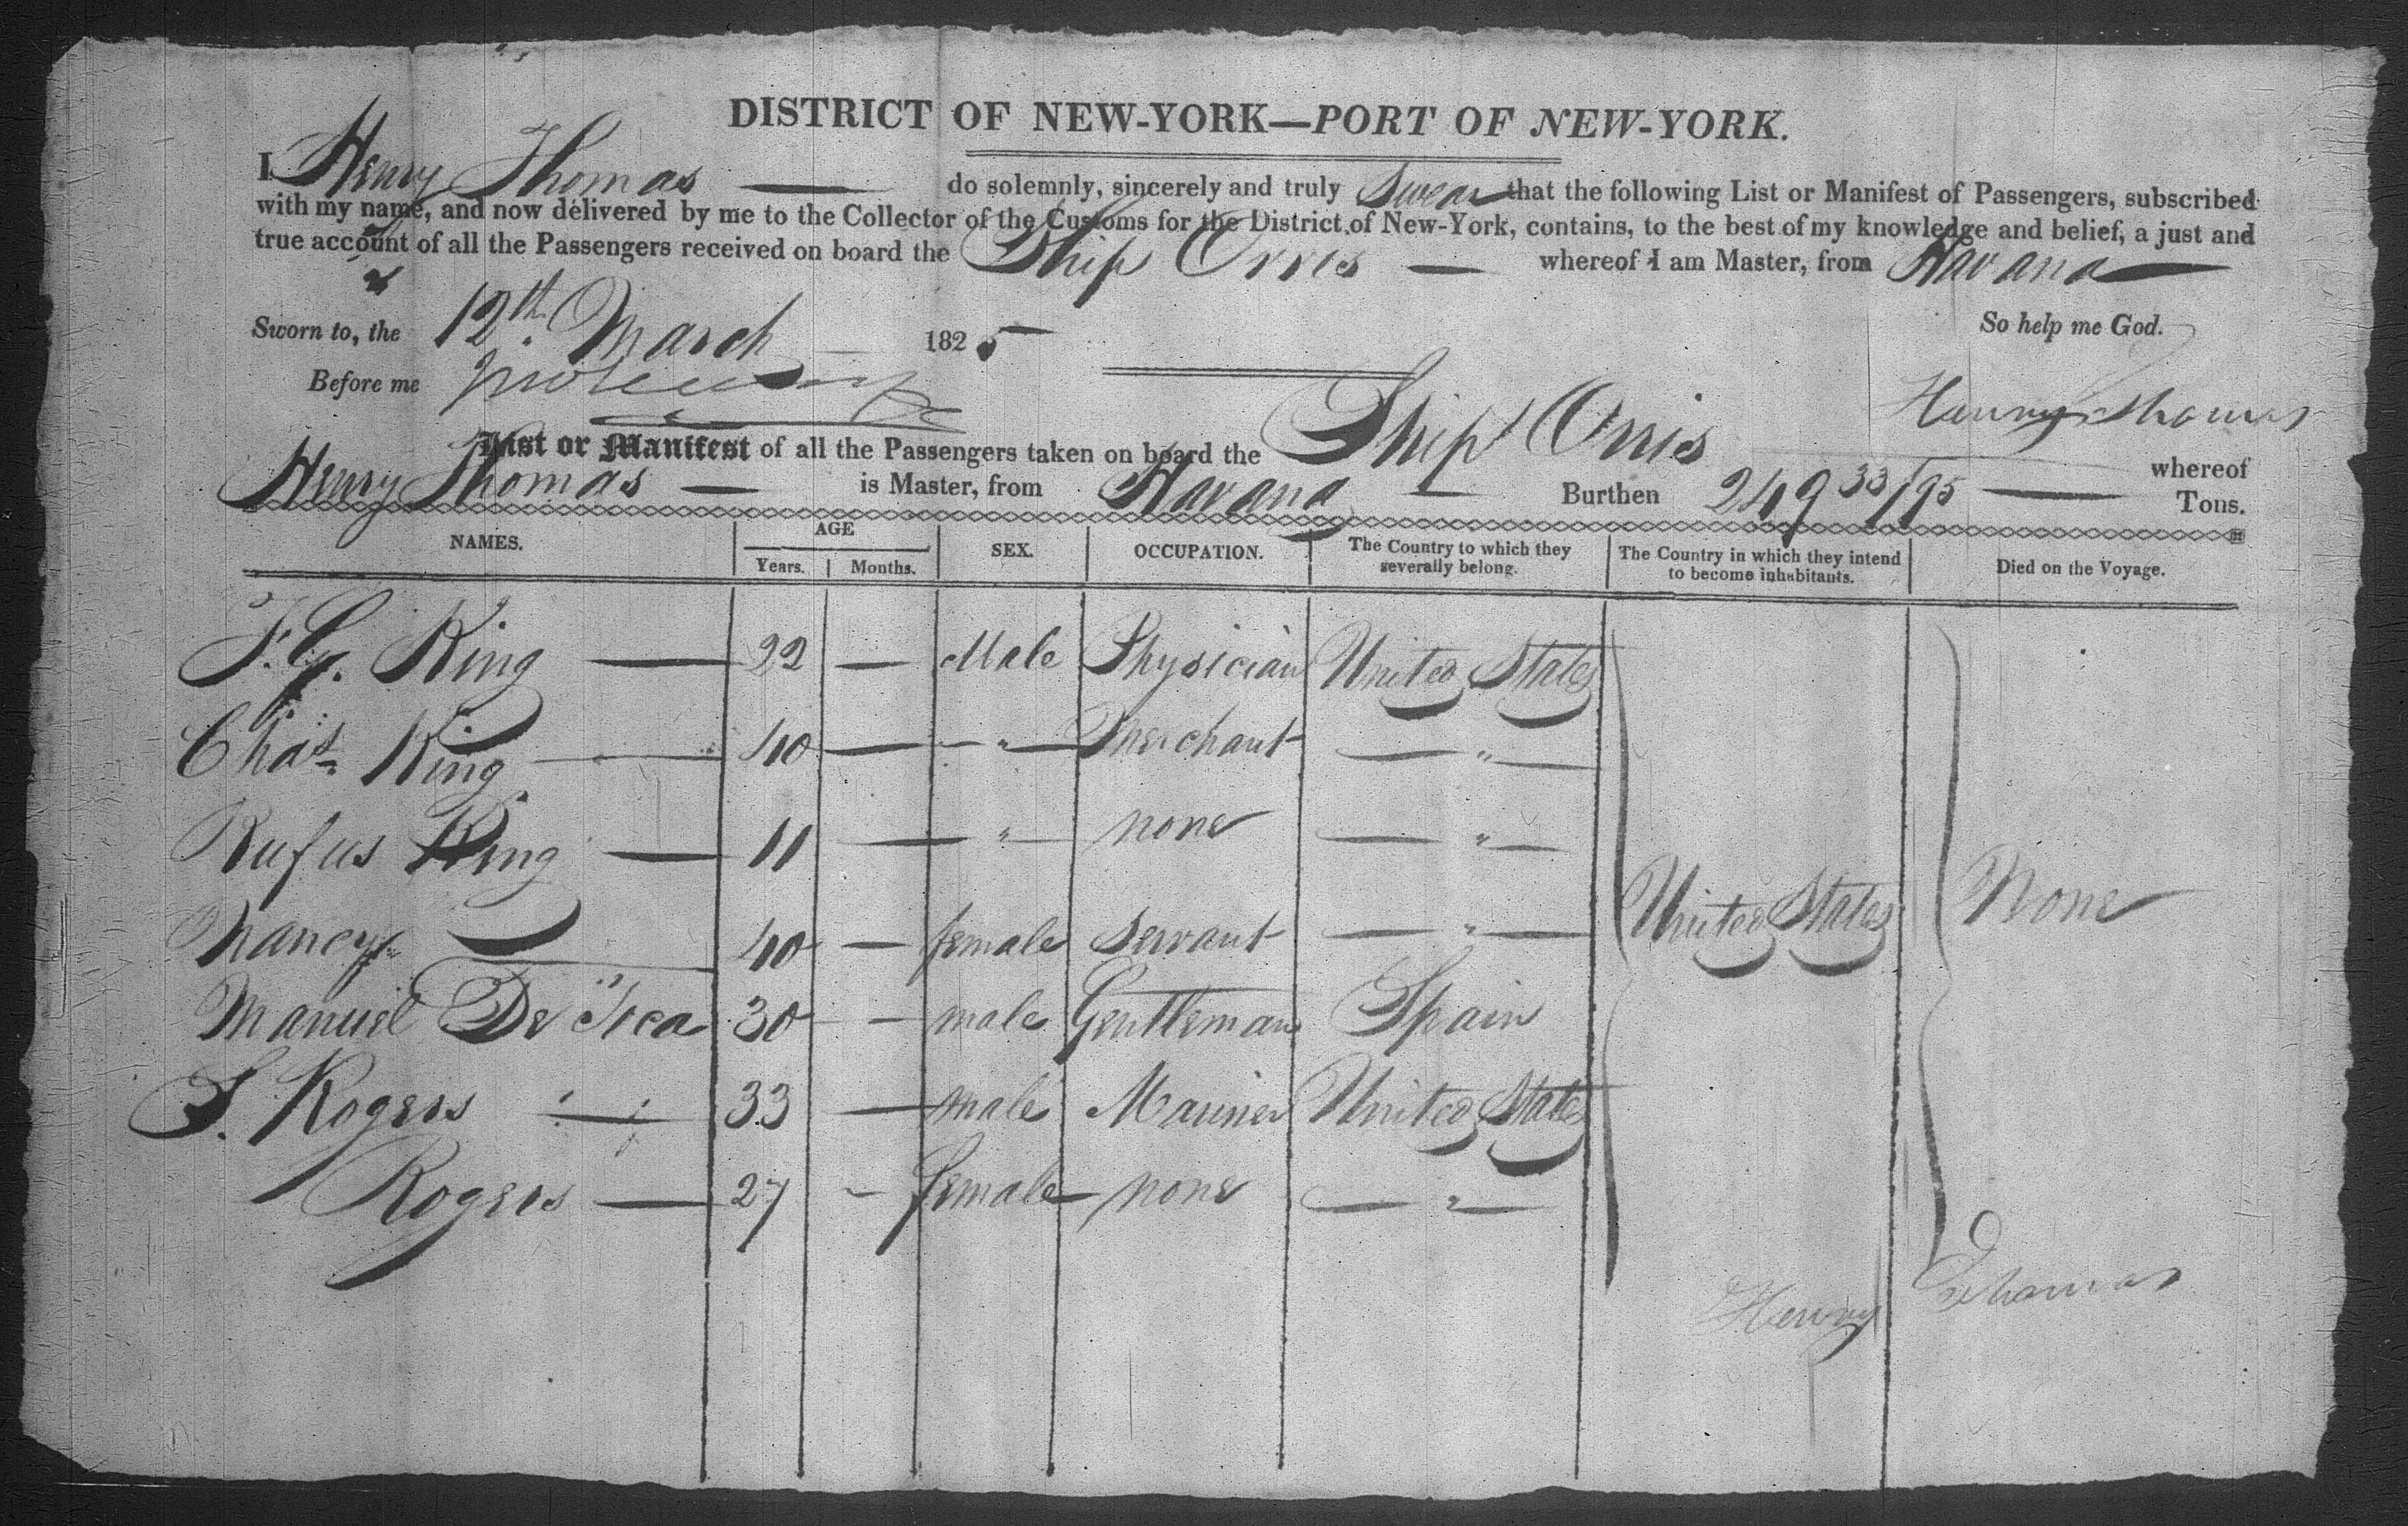 DISTRICT OF NEW-YORK—PORT OF NEW-YORK.
I Henry Thomas — do solemnly, sincerely and truly Swear that the following List or Manifest of Passengers, subscribed
with my name, and now delivered by me to the Collector of the Customs for the District of New-York, contains, to the best of my knowledge and belief, a just and
true account of all the Passengers received on board the Ship Orris — whereof I am Master, from Havana —
So help me God.
Sworn to, the 12th March 1825
Before me
Henry Thomas
List or Manifest of all the Passengers taken on board the Ship Orris whereof
Henry Thomas — is Master, from Havana — Burthen 249 33/95 — Tons.
NAMES. AGE Years. Months. SEX. OCCUPATION. The Country to which they severally belong. The Country in which they intend to become inhabitants. Died on the Voyage.
J. G. King — 22 — Male Physician United States
Chas. King — 40 — " — Merchant — " —
Rufus King — 11 — " — none — " —
Nancy — 40 — female Servant — " — United States None
Manuel De 30 — male Gentleman Spain
S. Rogers — 33 — male Mariner United States
Rogers — 27 - female — none — " —
Henry Thomas